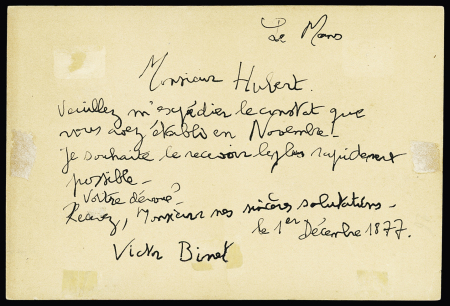 Le Mans
Monsieur Hubert.
Veuillez m'expédier le constat que
vous avez établi en Novembre -
je souhaite le recevoir le plus rapidement
possible -
Votre dévoué -
Recevez, Monsieur mes sincères salutations -
le 1er Décembre 1877.
Victor Binet